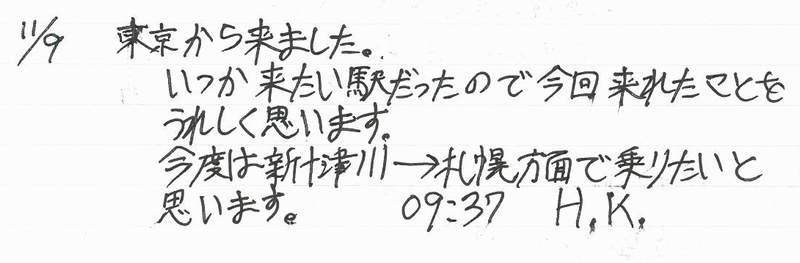 11/9 東京から来ました。
いつか来たい駅だったので今回来れたことを
うれしく思います。
今度は新十津川→札幌方面で乗りたいと
思います。 09:37 H.K.